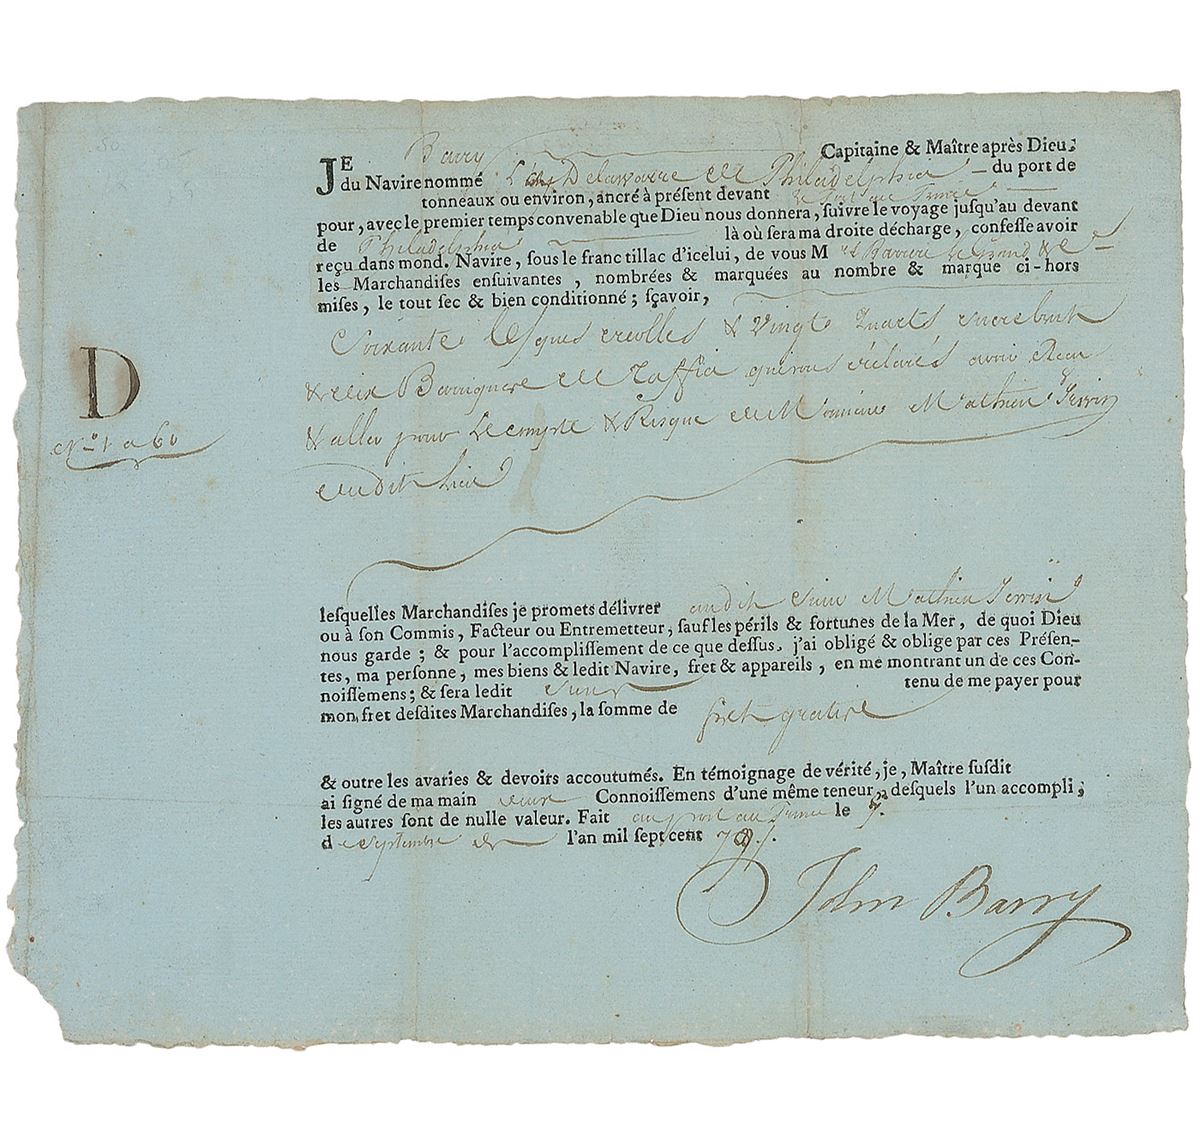 JE Barry Capitaine & Maître après Dieu,
du Navire nommé Delaware de Philadelphia du port de
tonneaux ou environ, ancré à présent devant
pour, avec le premier temps convenable que Dieu nous donnera, suivre le voyage jusqu'au devant
de Philadelphia là où sera ma droite décharge, confesse avoir
reçu dans mond. Navire, sous le franc tillac d'icelui, de vous M
les Marchandises ensuivantes, nombrées & marquées au nombre & marque ci-hors
mises, le tout sec & bien conditionné; sçavoir,
Soixante & Vingt Quarts sucre brut
& dix Barriques de Taffia avoir
& aller pour Le compte & Risque de Monsieur Mathieu
dudit Lieu
D
No. 1 a 60
lesquelles Marchandises je promets délivrer audit sieur Mathieu
ou à son Commis, Facteur ou Entremetteur, sauf les périls & fortunes de la Mer, de quoi Dieu
nous garde; & pour l'accomplissement de ce que dessus, j'ai obligé & oblige par ces Présen-
tes, ma personne, mes biens & ledit Navire, fret & appareils, en me montrant un de ces Con-
noissemens; & sera ledit sieur tenu de me payer pour
mon fret desdites Marchandises, la somme de fret gratis
& outre les avaries & devoirs accoutumés. En témoignage de vérité, je, Maître susdit
ai signé de ma main Connoissemens d'une même teneur, desquels l'un accompli,
les autres sont de nulle valeur. Fait au port au Prince le
d e septembre l'an mil sept cent
John Barry